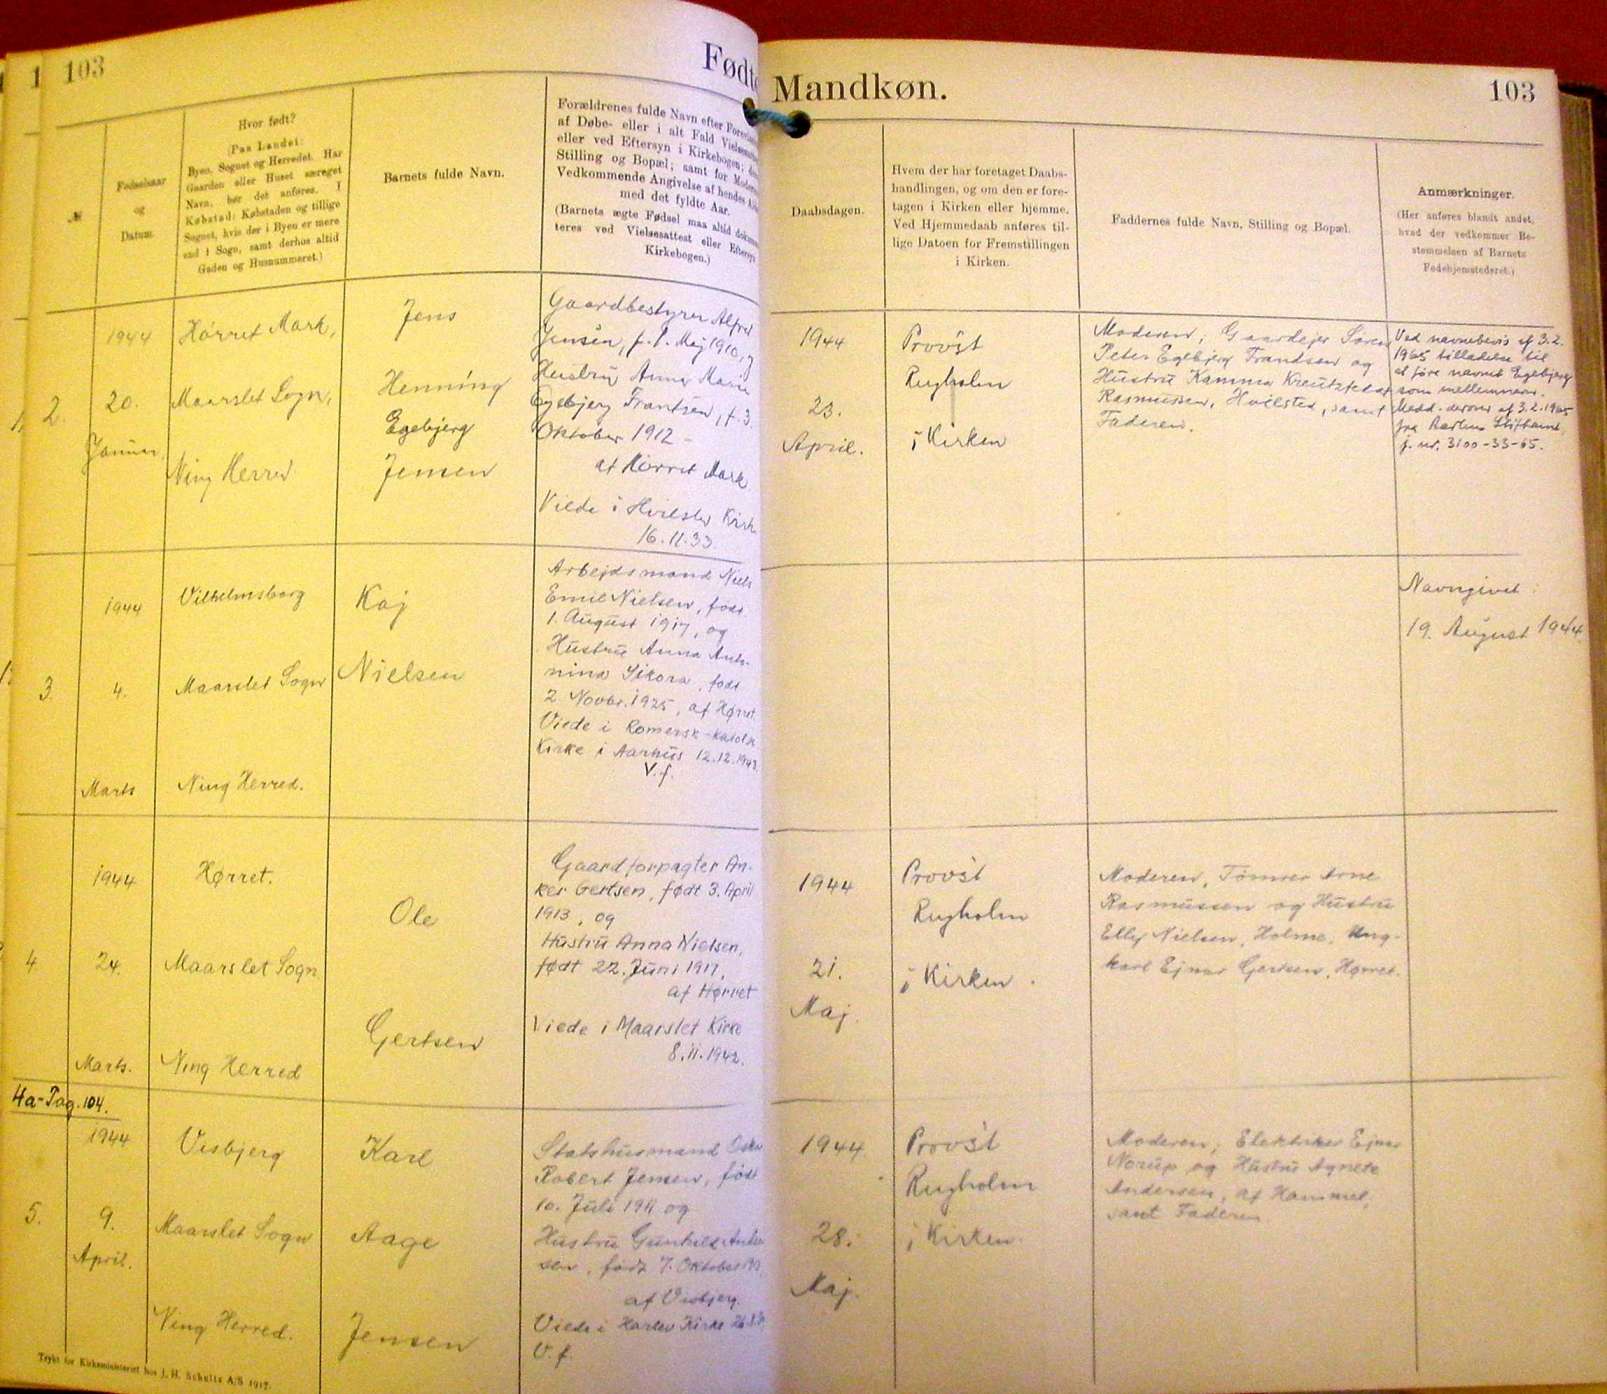 103
Fødte
Mandkøn.
103
№
Fødselsaar
og
Datum.
Hvor født?
(Paa Landet:
Byen, Sognet og Herredet. Har
Gaarden eller Huset særeget
Navn, bør det anføres. I
Købstad: Købstaden og tillige
Sognet, hvis der i Byen er mere
end 1 Sogn, samt derhos altid
Gaden og Husnummeret.)
Barnets fulde Navn.
Forældrenes fulde Navn efter
af Døbe- eller i alt Fald
eller ved Eftersyn i Kirkebogen;
Stilling og Bopæl; samt for
Vedkommende Angivelse af hendes
med det fyldte Aar.
(Barnets ægte Fødsel maa altid
teres ved Vielsesattest eller
Kirkebogen.)
Daabsdagen.
Hvem der har foretaget Daabs-
handlingen, og om den er fore-
tagen i Kirken eller hjemme.
Ved Hjemmedaab anføres til-
lige Datoen for Fremstillingen
i Kirken.
Faddernes fulde Navn, Stilling og Bopæl.
Anmærkninger.
(Her anføres blandt andet,
hvad der vedkommer Be-
stemmelsen af Barnets
Fødehjemstederet.)
2.
1944
20.
Januar
Hørret Mark,
Maarslet Sogn,
Ning Herred
Jens
Henning
Egebjerg
Jensen
Gaardbestyrer Alfred
Jensen, f. 1. Maj 1910, og
Hustru Anna Marie
Egebjerg Frantsen, f. 3.
Oktober 1912 -
af Hørret Mark
Viede i Hvilsted Kirke
16.11.33.
1944
23.
April.
Provst
Rugholm
i Kirken
Moderen; Gaardejer Søren
Peter Egebjerg Frandsen og
Hustru Kamma Kreutzfeldt
Rasmussen, Hvilsted, samt
Faderen.
Ved navnebevis af 3.2.
1965 tilladelse til
at føre navnet Egebjerg
som mellemnavn.
Medd. derom af 3.2.1965
fra Aarhus Stiftamt,
j. nr. 3100-33-65.
3.
1944
4.
Marts
Vilhelmsborg
Maarslet Sogn
Ning Herred.
Kaj
Nielsen
Arbejdsmand Niels
Emil Nielsen, født
1. August 1917, og
Hustru Anna Anto-
nina Sikora, født
2 Novbr. 1925, af Hørret
Viede i Romersk-katolsk
Kirke i Aarhus 12.12.1943.
V.f.
Navngivet:
19. August 1944
4
1944
24.
Marts.
Hørret.
Maarslet Sogn
Ning Herred
Ole
Gertsen
Gaardforpagter An-
ker Gertsen, født 3. April
1913, og
Hustru Anna Nielsen,
født 22. Juni 1917,
af Hørret
Viede i Maarslet Kirke
8.11.1942.
1944
21.
Maj.
Provst
Rugholm
i Kirken.
Moderen, Tømrer Arne
Rasmussen og Hustru
Elly Nielsen, Holme, Ung-
karl Ejnar Gertsen, Hørret.
4a-Pag. 104.
5.
1944
9.
April.
Visbjerg
Maarslet Sogn
Ning Herred.
Karl
Aage
Jensen
Statshusmand Oskar
Robert Jensen, født
10. Juli 1911 og
Hustru Gunhild Ander
sen, født 7. Oktober
af Visbjerg.
Viede i Harlev Kirke
V.f.
1944
28.
Maj.
Provst
Rugholm
i Kirken.
Moderen; Elektriker Ejnar
Norup og Hustru Agnete
Andersen, af Hammel,
samt Faderen
Trykt for Kirkeministeriet hos J. H. Schultz A/S 1917.